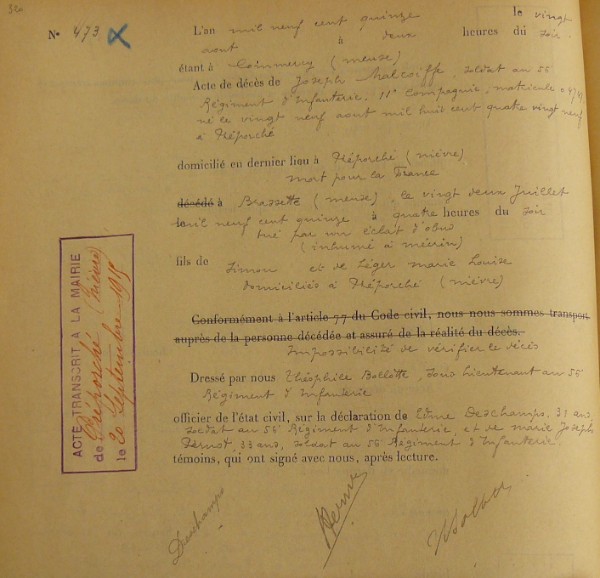 No 473
L'an mil neuf cent quinze le vingt
aout à deux heures du soir
étant à Commercy (meuse)
Acte de décès de Joseph soldat au 56
Régiment d'Infanterie, 11e Compagnie, matricule
né le vingt neuf aout mil huit cent quatre vingt neuf
à Préporché
domicilié en dernier lieu à Préporché (nièvre)
mort pour la France
décédé à Brassette (meuse), le vingt deux Juillet
mil neuf cent quinze à quatre heures du soir
tué par un éclat d'obus
(inhumé à mécrin)
fils de Simon et de Léger marie Louise
domiciliés à Préporché (nièvre)
Conformément à l'article 77 du Code civil, nous nous sommes transport
auprès de la personne décédée et assuré de la réalité du décès.
Impossibilité de vérifier le décès
Dressé par nous Théophile Bollotte, sous Lieutenant au 56
Régiment d'Infanterie
officier de l'état civil, sur la déclaration de Edme Deschamps, 31 ans,
soldat au 56 Régiment d'Infanterie, et de marie Joseph
33 ans, soldat au 56 Régiment d'Infanterie,
témoins, qui ont signé avec nous, après lecture.
Deschamps
ACTE TRANSCRIT A LA MAIRIE
de Préporché (Nièvre)
le 20 Septembre 1915